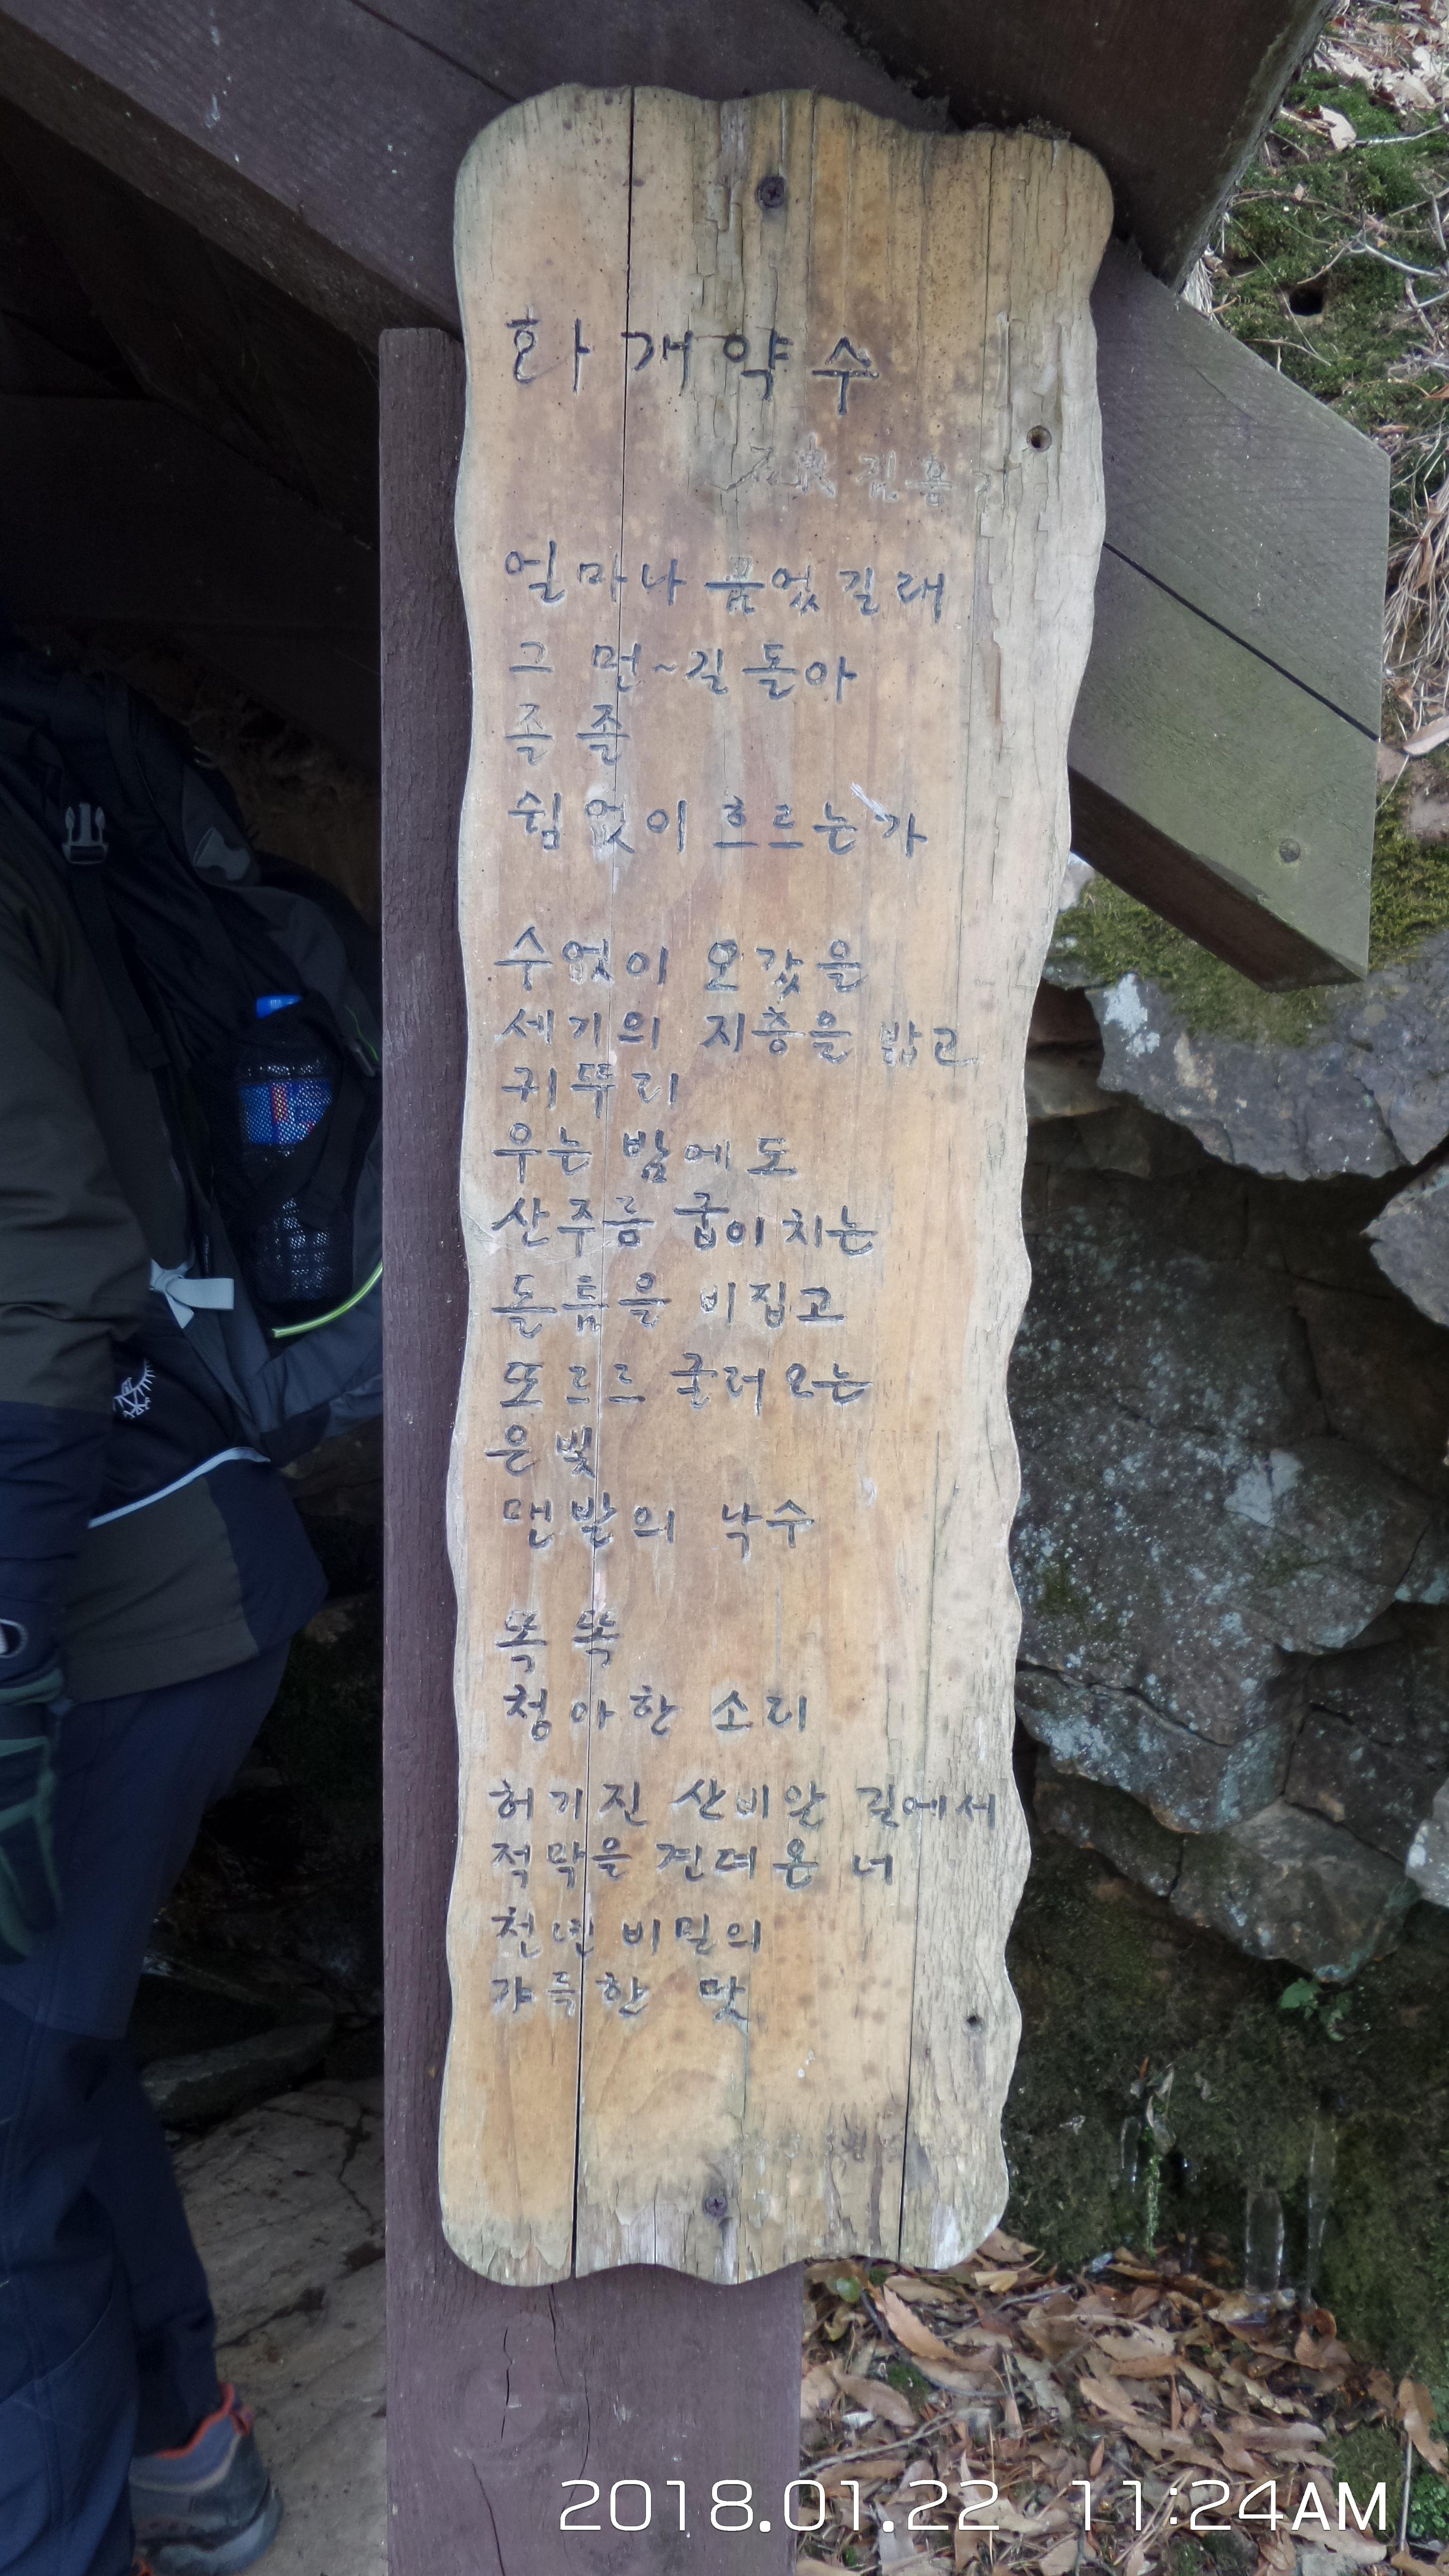 화개약수
김흥리
얼마나 품었길래
그 먼~길 돌아
졸 졸
쉼없이 흐르는가
수없이 오갔을
세기의 지층을 밟고
귀뚜리
우는 밤에도
산주름 굽이치는
돌틈을 비집고
또르르 굴러오는
은빛
맨발의 낙수
똑 똑
청아한 소리
허기진 산비알 길에서
적막을 견뎌온 너
천년 비밀의
갸륵한 맛
2018.01.22 11:24AM